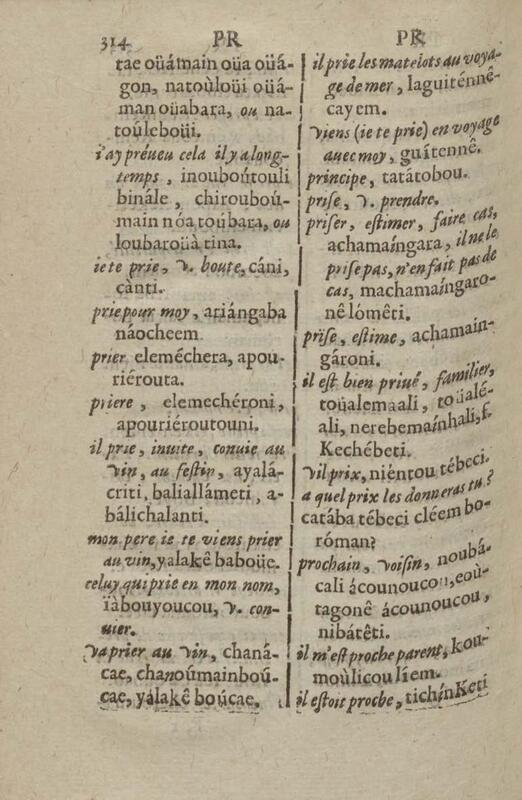 314 PR PR
tae oüámain oüa oüá-
gon, natoùloüi oüá-
man oüabara, ou na-
toúleboüi.
i'ay préueu cela il y a long-
temps, inouboútouli
binále, chirouboú-
main nóa toúbara, ou
loubaroüà tina.
ie te prie, v. boute, cáni,
cànti.
prie pour moy, ariángaba
náocheem
prier eleméchera, apou-
riérouta.
priere, elemechéroni,
apouriéroutouni.
il prie, inuite, conuie au
vin, au festin, ayalá-
criti, baliallámeti, a-
bálichalanti.
mon pere ie te viens prier
au vin, yalakê baboüe.
celuy qui prie en mon nom,
ïàbouyoucou, v. con-
uier.
va prier au vin, chaná-
cae, chanoúmainboú-
cae, yálakê boúcae.
il prie les matelots au voya-
ge de mer, laguiténnê-
cayem.
viens (ie te prie) en voyage
auec moy, guítennê.
principe, tatátobou.
prise, v. prendre.
priser, estimer, faire cas,
achamaíngara, il ne le
prise pas, n'en fait pas de
cas, machamaíngaro-
nê lómêti.
prise, estime, achamain-
gároni.
il est bien priué, familier,
toüalemaali, toüalé-
ali, nerebemaínhali, f.
Kechébeti.
vil prix, niëntou tébeci.
a quel prix les donneras tu?
catába tébeci cléem bo-
róman?
prochain, voisin, noubá-
cali ácounoucou, eoù-
tagonê ácounoucou,
nibátêti.
il m'est proche parent, kou-
moùlicou líem.
il estoit proche, tichínKeti